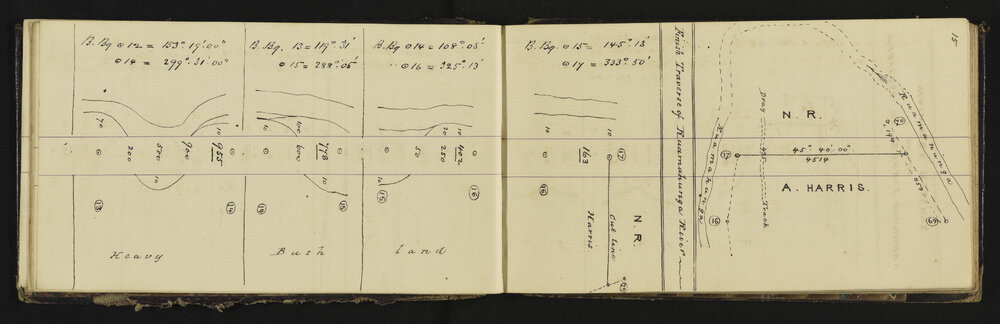 B. Bg ⊙ 12 = 153°. 19'. 00"
⊙ 14 = 299°. 31'. 00"
70
200
500
10
900
10
955
13
14
Heavy
B. Bg. 13 = 119°. 31'
⊙ 15 = 288°. 05'
10
400
600
10
778
14
15
Bush
B. Bg ⊙ 14 = 108°. 05'
⊙ 16 = 325°. 13'
10
50
20
250
10
402
15
16
land
B. Bg. ⊙ 15 = 145°. 13'
⊙ 17 = 333°. 50'
10
10
163
16
17
Harris
Cut line
N. R.
Finish Traverse of Ruamahunga River
15
Ruamahunga
16
17
Dray
Track
N. R.
45° 40'. 00"
4514
A. HARRIS.
Ruamahunga